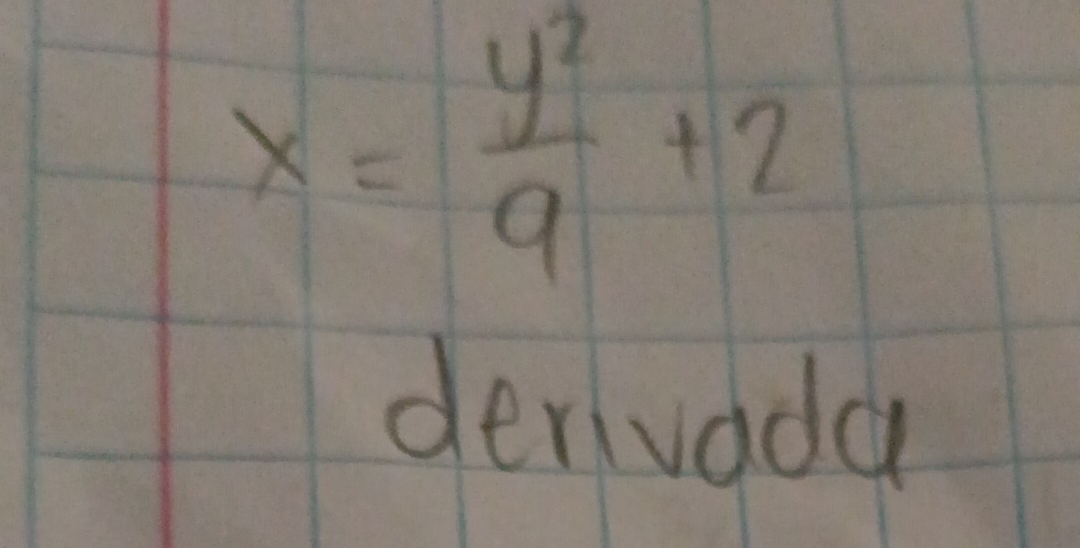 x = y²/9 + 2
derivada